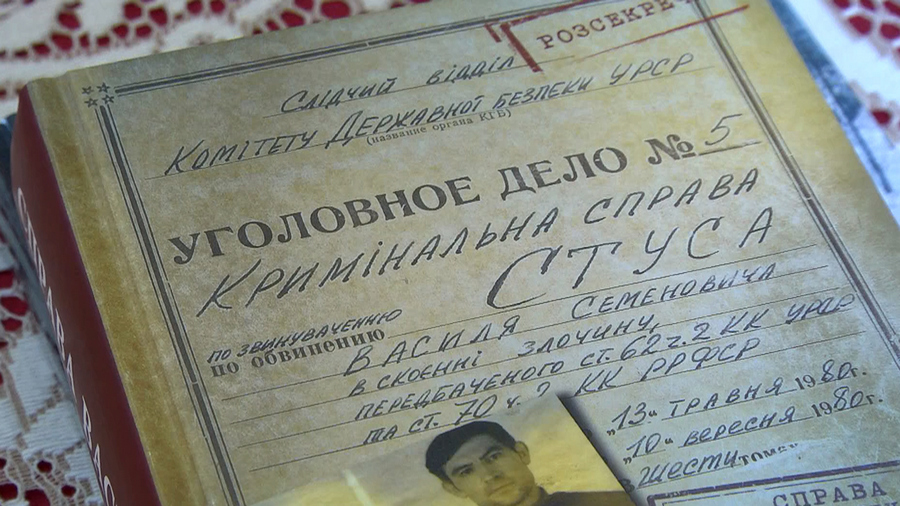 РОЗСЕКРЕЧ
Слідчий відділ
Комітету Державної безпеки УРСР
(название органа КГБ)
УГОЛОВНОЕ ДЕЛО № 5
Кримінальна справа
СТУСА
по звинуваченню
по обвинению
Василя Семеновича
в скоєнні злочину,
передбаченого ст. 62 ч. 2 КК УРСР
та ст. 70 ч. 2 КК РРФСР
„13" травня 1980г.
„10" вересня 1980г.
в шести томах
СПРАВА
СПРАВА ВАС